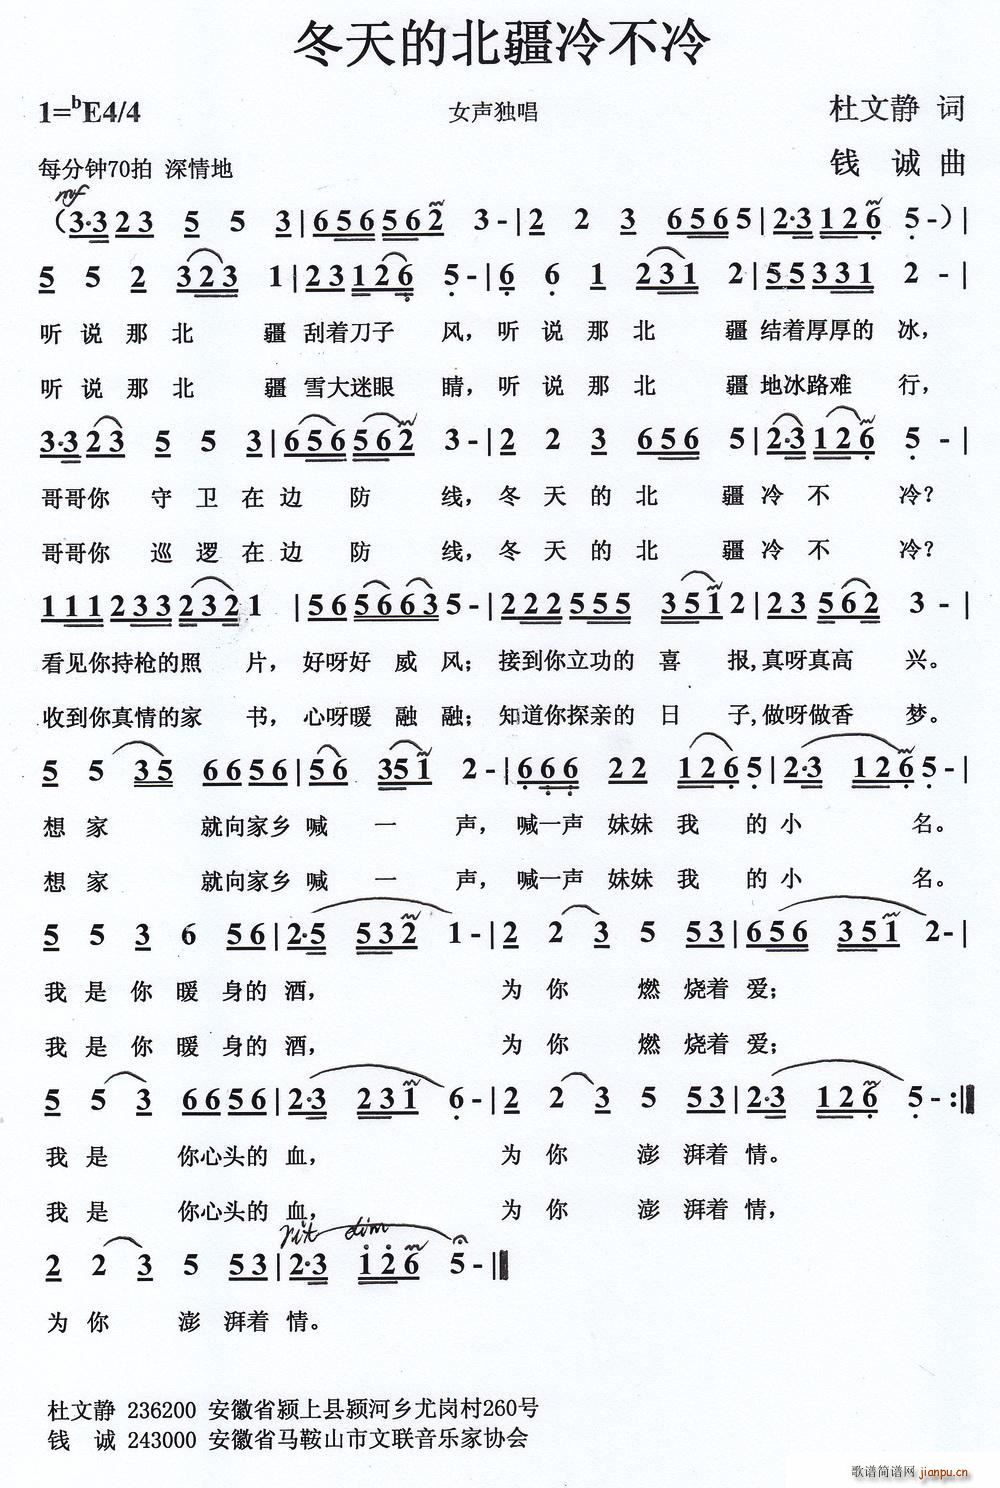 冬天的北疆冷不冷
1=ᵇE4/4 女声独唱 杜文静 词
每分钟70拍 深情地 钱 诚 曲
mf
（3·3 2 3 5 5 3 | 6 5 6 5 6 2 3 - | 2 2 3 6 5 6 5 | 2·3 1 2 6 5 - ）|
5 5 2 3 2 3 1 | 2 3 1 2 6 5 - | 6 6 1 2 3 1 2 | 5 5 3 3 1 2 - |
听 说 那 北 疆 刮着刀子 风， 听 说 那 北 疆 结着厚厚的 冰，
听 说 那 北 疆 雪大迷眼 睛， 听 说 那 北 疆 地冰路难 行，
3·3 2 3 5 5 3 | 6 5 6 5 6 2 3 - | 2 2 3 6 5 6 5 | 2·3 1 2 6 5 - |
哥哥你 守 卫 在 边 防 线， 冬 天 的 北 疆 冷 不 冷？
哥哥你 巡 逻 在 边 防 线， 冬 天 的 北 疆 冷 不 冷？
1 1 1 2 3 3 2 3 2 1 | 5 6 5 6 6 3 5 - | 2 2 2 5 5 5 3 5 1 2 | 2 3 5 6 2 3 - |
看见你持枪的照 片， 好呀好 威 风； 接到你立功的 喜 报，真呀真高 兴。
收到你真情的家 书， 心呀暖 融 融； 知道你探亲的 日 子，做呀做香 梦。
5 5 3 5 6 6 5 6 | 5 6 3 5 1 2 - | 6 6 6 2 2 1 2 6 5 | 2·3 1 2 6 5 - |
想 家 就向家乡 喊 一 声， 喊一声 妹妹 我 的 小 名。
想 家 就向家乡 喊 一 声， 喊一声 妹妹 我 的 小 名。
5 5 3 6 5 6 | 2·5 5 3 2 1 - | 2 2 3 5 5 3 | 6 5 6 3 5 1 2 - |
我 是 你 暖 身的 酒， 为 你 燃 烧着 爱；
我 是 你 暖 身的 酒， 为 你 燃 烧着 爱；
5 5 3 6 6 5 6 | 2·3 2 3 1 6 - | 2 2 3 5 5 3 | 2·3 1 2 6 5 - :‖
我 是 你心头的 血， 为 你 澎 湃着 情。
我 是 你心头的 血， 为 你 澎 湃着 情，
rit dim
2 2 3 5 5 3 | 2·3 1 2 6 5 - ‖
为 你 澎 湃着 情。
杜文静 236200 安徽省颍上县颍河乡尤岗村260号
钱 诚 243000 安徽省马鞍山市文联音乐家协会
歌谱简谱网 jianpu.cn